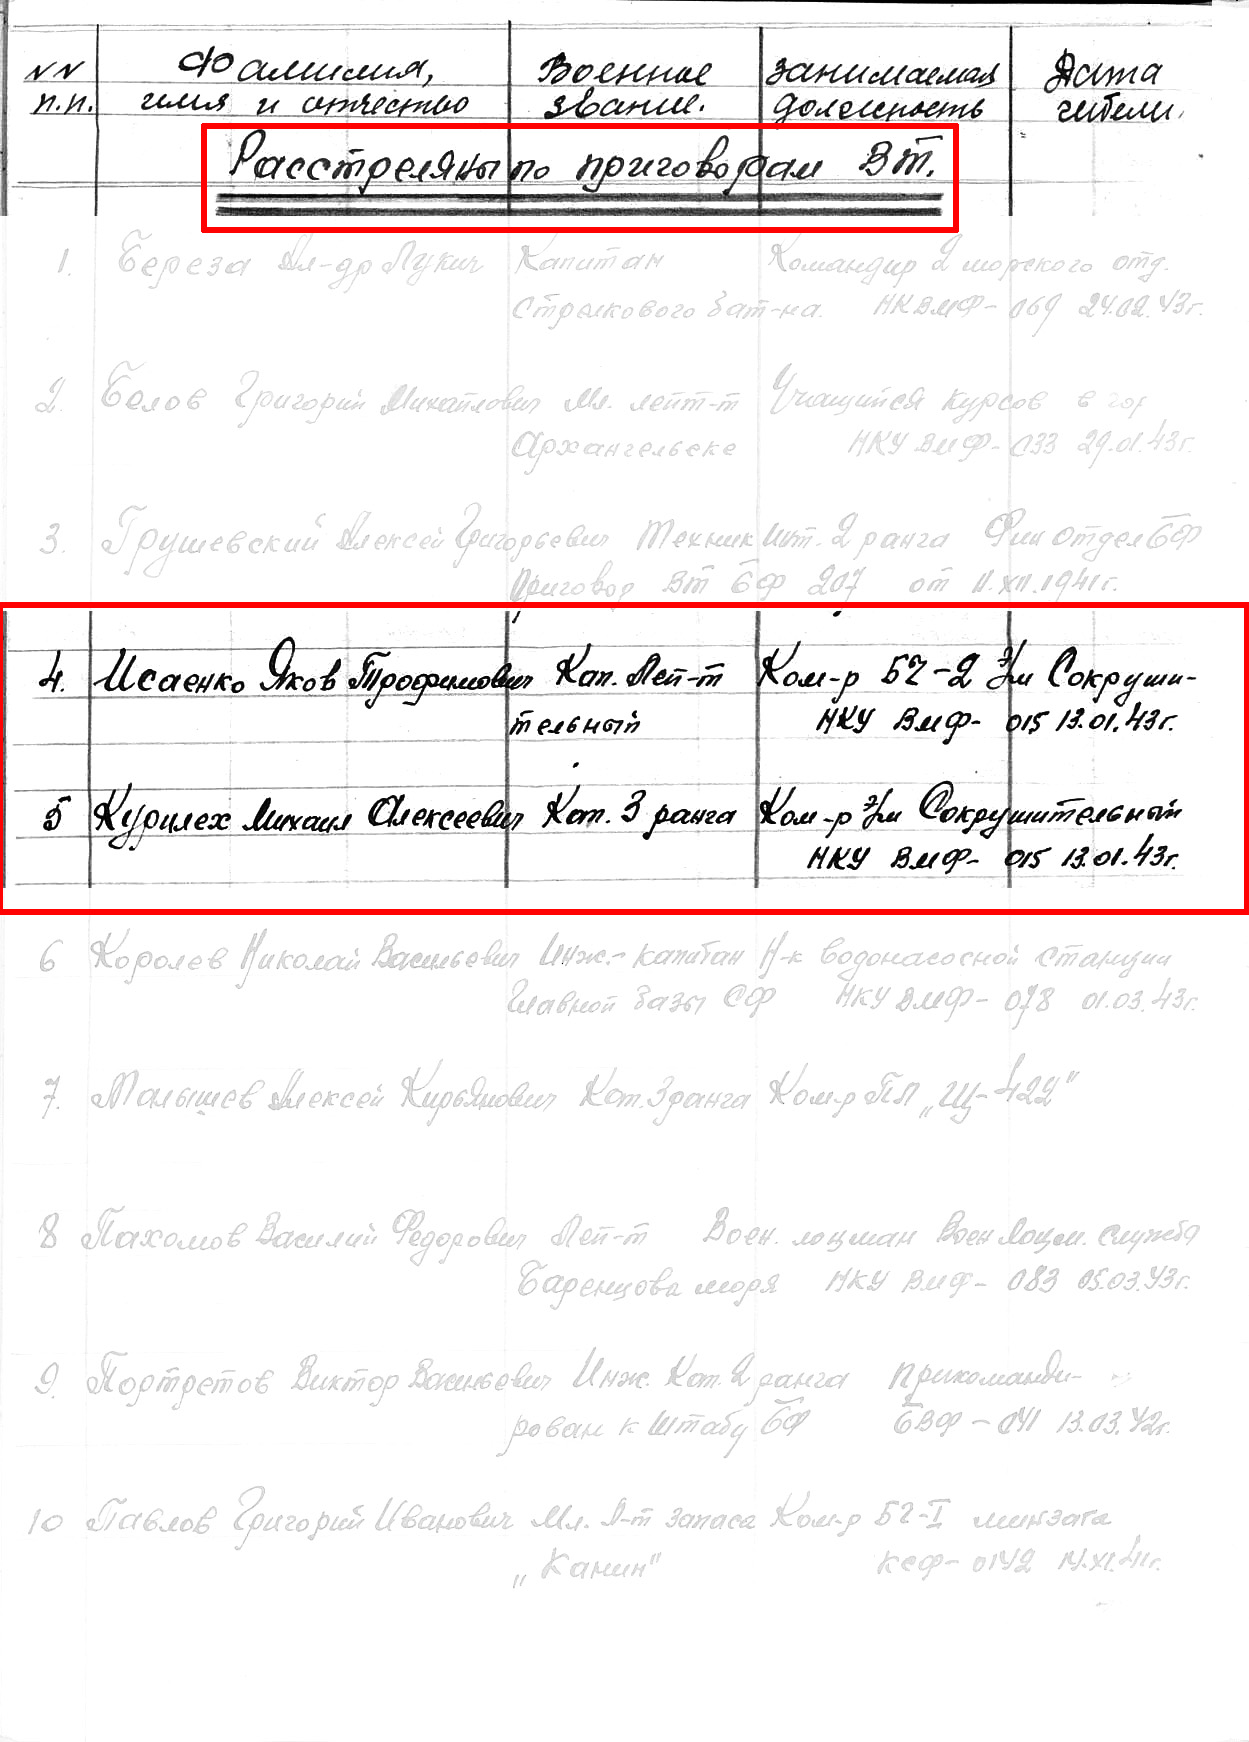 NN Фамилия, Военное занимаемая Дата
п.п. имя и отчество звание. должность гибели.
Расстреляны по приговорам ВТ.
1. Береза Ал-др Лукич Капитан Командир 2 морского отд.
стрелкового бат-на. НКВМФ- 069 24.02.43г.
2. Белов Григорий Михайлович Мл. лейт-т Учащийся курсов в гор
Архангельске НКУ ВМФ- 033 29.01.43г.
3. Грушевский Алексей Григорьевич Техник инт. 2 ранга Фин отдел БФ
Приговор ВТ БФ 207 от 11.XII.1941г.
4. Исаенко Яков Трофимович Кап. Лей-т Ком-р БЧ-2 Э/м Сокруши-
тельный НКУ ВМФ- 015 13.01.43г.
5 Курилех Михаил Алексеевич Кап. 3 ранга Ком-р Э/м Сокрушительный
НКУ ВМФ- 015 13.01.43г.
6 Королев Николай Васильевич Инж.-капитан Н-к водонасосной станции
Главной базы СФ НКУ ВМФ- 078 01.03.43г.
7. Малышев Алексей Кирьянович Кап. 3 ранга Ком-р ПЛ „Щ-422"
8 Пахомов Василий Федорович Лей-т Воен. лоцман Воен Лоцм. служба
Баренцова моря НКУ ВМФ- 083 05.03.43г.
9. Портретов Виктор Васильевич Инж. Кап. 2 ранга Прикоманди-
рован к штабу БФ БВФ-041 13.03.42г.
10 Павлов Григорий Иванович Мл. Л-т запаса Ком-р БЧ-I минзага
„Канин" КСФ- 0142 14.XI.41г.